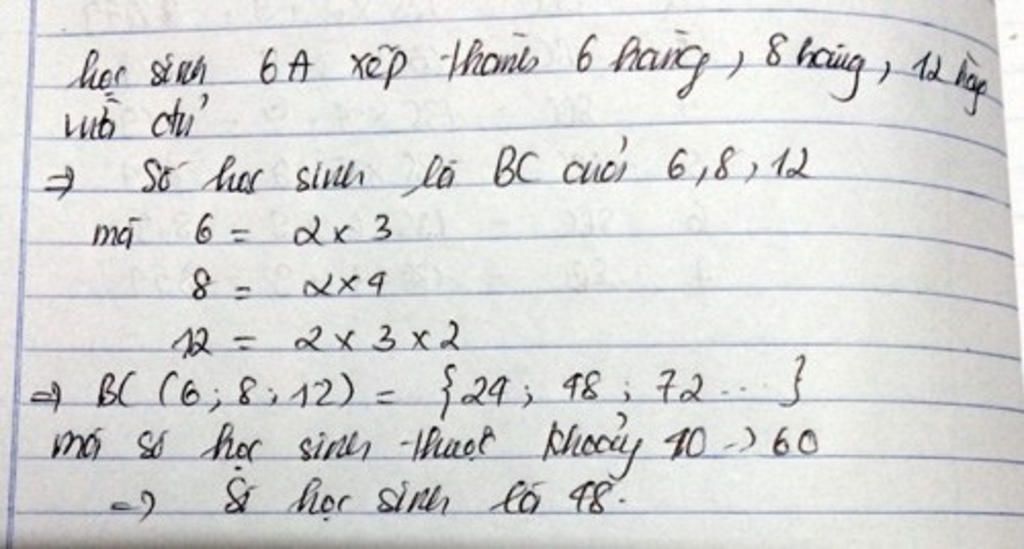 học sinh 6A xếp thành 6 hàng, 8 hàng, 12 hàng
vừa đủ
=> Số học sinh là BC của 6, 8, 12
mà 6 = 2 x 3
8 = 2 x 4
12 = 2 x 3 x 2
=> BC (6; 8; 12) = {24; 48; 72 ... }
mà số học sinh thuộc khoảng 40 -> 60
=> Số học sinh là 48.